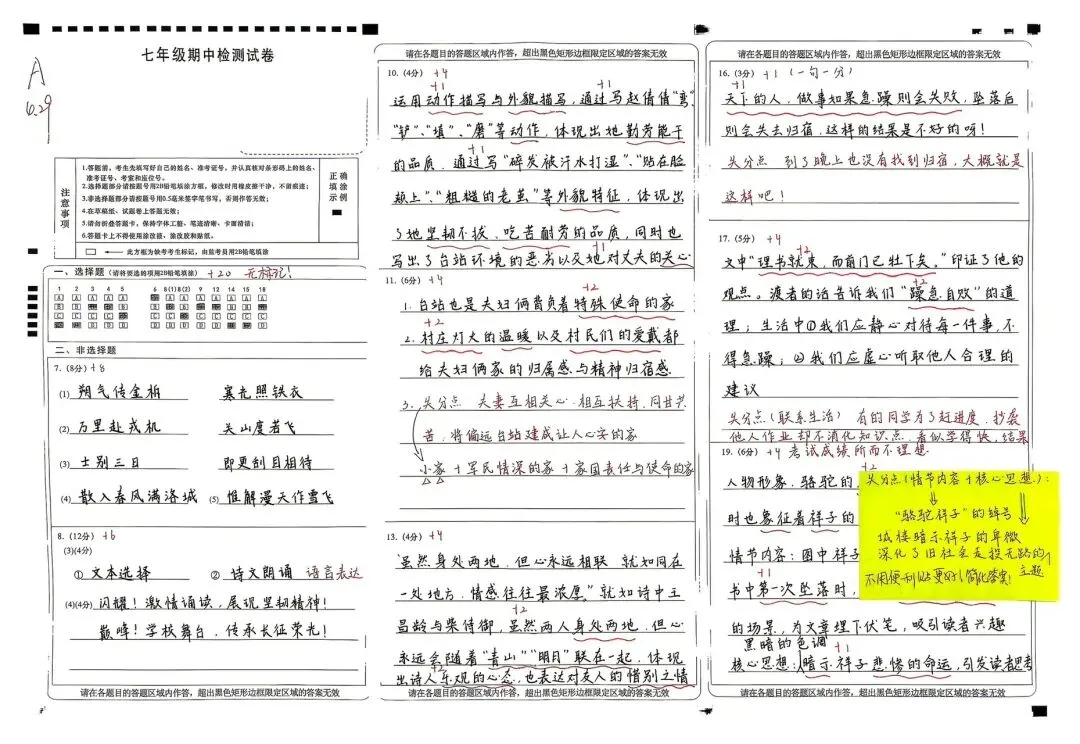 七年级期中检测试卷
A
6.29
注意事项
1.答题前，考生先填写好自己的姓名、准考证号，并认真核对条形码上的姓名、
准考证号、考室和座位号。
2.选择题部分请按题号用2B铅笔填涂方框，修改时用橡皮擦干净，不留痕迹；
3.非选择题部分请按题号用0.5毫米签字笔书写，否则作答无效；
4.在草稿纸、试题卷上答题无效；
5.请勿折叠答题卡，保持字体工整、笔迹清晰、卡面清洁；
6.答题卡上不得使用涂改液、涂改胶和贴纸。
正确填涂示例
此方框为缺考考生标记，由监考员用2B铅笔填涂
一、选择题（请将要选的项用2B铅笔填涂） +20 无标记！
1 2 3 4 5 6 8(1) 8(2) 9 12 14 15 18
二、非选择题
7.（8分） +8
(1) 朔气传金柝 寒光照铁衣
(2) 万里赴戎机 关山度若飞
(3) 士别三日 即更刮目相待
(4) 散入春风满洛城 (5) 惟解漫天作雪飞
8.（12分） +6
(3)(4分)
① 文本选择 ② 诗文朗诵 语言表达
(4)(4分) 闪耀！激情诵读，展现坚韧精神！
巅峰！学校舞台，传承长征荣光！
请在各题目的答题区域内作答，超出黑色矩形边框限定区域的答案无效
请在各题目的答题区域内作答，超出黑色矩形边框限定区域的答案无效
10.（4分） +4
+1 +1
运用动作描写与外貌描写，通过写赵倩倩“弯”
“铲”、“填”、“磨”等动作，体现出她勤劳能干
+1
的品质，通过写“碎发被汗水打湿”、“贴在脸
颊上”、“粗糙的老茧”等外貌特征，体现出
了她坚韧不拔、吃苦耐劳的品质，同时也
+1
写出了台站环境的恶劣以及她对丈夫的关心
11.（6分） +4
+2
1. 台站也是夫妇俩肩负着特殊使命的家
+2
2. 村庄灯火的温暖以及村民们的爱戴都
给夫妇俩家的归属感与精神归宿感
3. 失分点 夫妻互相关心、相互扶持、同甘共
苦，将偏远台站建成让人心安的家
小家 + 军民情深的家 + 家国责任与使命的家
13.（4分） +4
虽然身处两地，但心永远相联 就如同在
一处地方，情感往往最浓厚。”就如诗中王
+2
昌龄与柴侍御，虽然两人身处两地，但心
永远会随着“青山”“明月”联在一起，体现
+2
出诗人乐观的心态，也表达对友人的惜别之情
请在各题目的答题区域内作答，超出黑色矩形边框限定区域的答案无效
请在各题目的答题区域内作答，超出黑色矩形边框限定区域的答案无效
16.（3分） +1 （一句一分）
+1
天下的人，做事如果急躁则会失败，坠落后
则会失去归宿，这样的结果是不好的呀！
失分点 到了晚上也没有找到归宿，大概就是
这样吧！
17.（5分） +4
+2
文中“理书就束，而前门已牡下矣。”印证了他的
+2
观点。渡者的话告诉我们“躁急自败”的道
理；生活中①我们应静心对待每一件事，不
得急躁；②我们应虚心听取他人合理的
建议
失分点（联系生活） 有的同学为了赶进度，抄袭
他人作业却不消化知识点，看似学得快，结果
19.（6分） +4 考试成绩所而不理想
+2
人物形象：骆驼的
时也象征着祥子的
情节内容：图中祥子
+1
书中第一次坠落时，
的场景，为文章埋下伏笔，吸引读者兴趣
黑暗的色调 +1
核心思想：暗示祥子悲惨的命运，引发读者思考
失分点（情节内容+核心思想）：
“骆驼祥子”的绰号
城楼暗示祥子的卑微
深化了旧社会走投无路的个
主题
不用便利贴更好！简化答案！
请在各题目的答题区域内作答，超出黑色矩形边框限定区域的答案无效